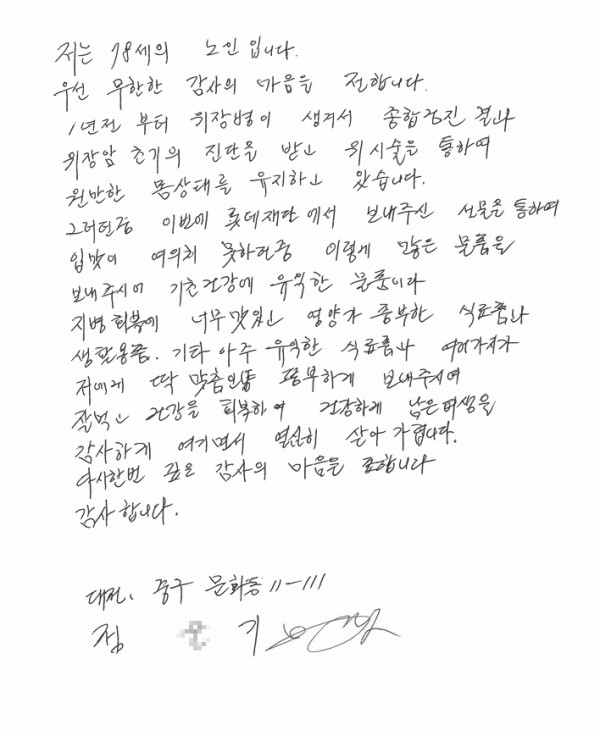 저는 78세의 노인입니다.
우선 무한한 감사의 마음을 전합니다.
1년전 부터 위장병이 생겨서 종합검진 결과
위장암 초기의 진단을 받고 위시술을 통하여
원만한 몸상태를 유지하고 있습니다.
그러던중 이번에 롯데재단에서 보내주신 선물을 통하여
입맛이 여의치 못하던중 이렇게 많은 물품을
보내주시어 기초건강에 유익한 물품이라
지병회복에 너무맛있고 영양가 풍부한 식료품과
생활용품. 기타 아주 유익한 식료품과 여러가지가
저에게 딱 맞춤인양 풍부하게 보내주시여
잘먹고 건강을 회복하여 건강하게 남은여생을
감사하게 여기면서 열심히 살아가렵니다.
다시한번 깊은 감사의 마음을 표합니다
감사합니다.
대전. 중구 문화동 11-111
정 기